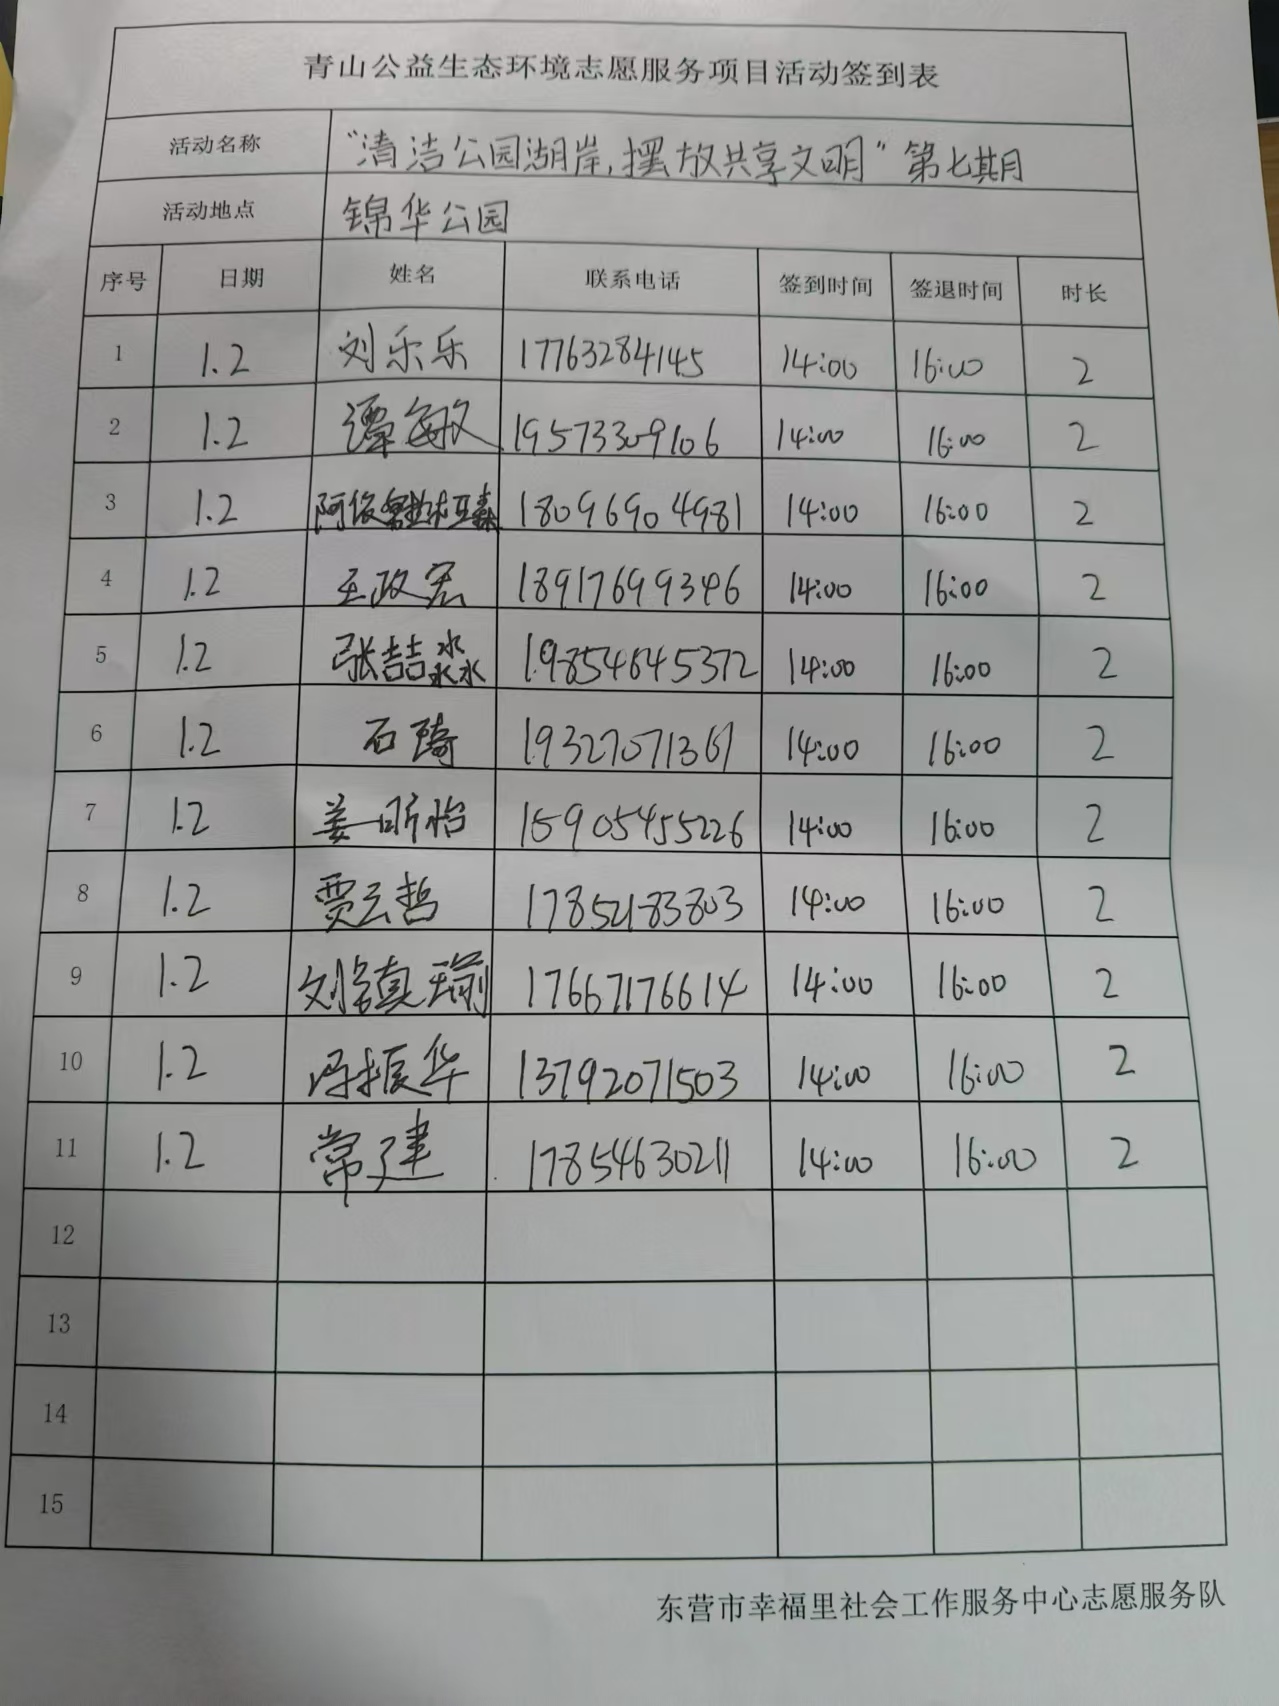 青山公益生态环境志愿服务项目活动签到表
活动名称 "清洁公园湖岸,摆放共享文明"第七期
活动地点 锦华公园
序号 日期 姓名 联系电话 签到时间 签退时间 时长
1 1.2 刘乐乐 17763284145 14:00 16:00 2
2 1.2 谭敏 19573309106 14:00 16:00 2
3 1.2 18096904981 14:00 16:00 2
4 1.2 王政宏 18917699346 14:00 16:00 2
5 1.2 张喆淼 19854645372 14:00 16:00 2
6 1.2 石琦 19327071361 14:00 16:00 2
7 1.2 姜昕怡 15905455226 14:00 16:00 2
8 1.2 贾云哲 17852183803 14:00 16:00 2
9 1.2 刘镇瑜 17667176614 14:00 16:00 2
10 1.2 冯振华 13792071503 14:00 16:00 2
11 1.2 常建 17854630211 14:00 16:00 2
12
13
14
15
东营市幸福里社会工作服务中心志愿服务队